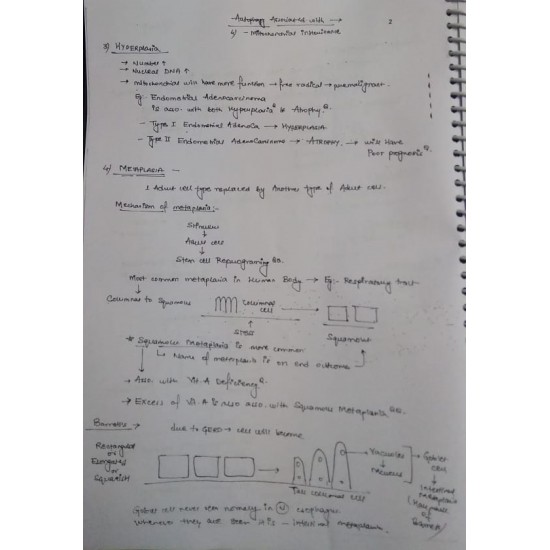 Autophagy Associated with →
2
4) - Mitochondrial
3) HYPERPLASIA
→ Number ↑
→ Nuclear DNA ↑
→ mitochondrial will have more function → free radical → premalignant.
Eg: Endometrial Adenocarcinoma
is asso. with both Hyperplasia & Atrophy
- Type I Endometrial → HYPERPLASIA
- Type II Endometrial Adenocarcinoma → ATROPHY → will Have
Poor prognosis
4) METAPLASIA -
1. Adult cell type replaced by Another type of Adult cell.
Mechanism of metaplasia:-
Stimulus
↓
Adult cell
↓
Stem cell Reprograming
Most common metaplasia in Human Body → Eg:- Respiratory tract
Columnar to Squamous
Columnar cell
→
Squamous
↑
Stress
* Squamous metaplasia is more common
↳ Name of metaplasia is on end outcome
→ Asso. with Vit-A Deficiency
→ Excess of Vit-A is also asso. with Squamous Metaplasia
Barrett's →
due to GERD → cell will become
Rectangular
or
Elongated
or
Squarish
→
Tall columnar cell
→ Vacuoles
→ Nucleus
→ Goblet
cell
↓
Intestinal
metaplasia
Goblet cell never seen normally in (N) esophagus
Whenever they are seen it is - Intestinal metaplasia.